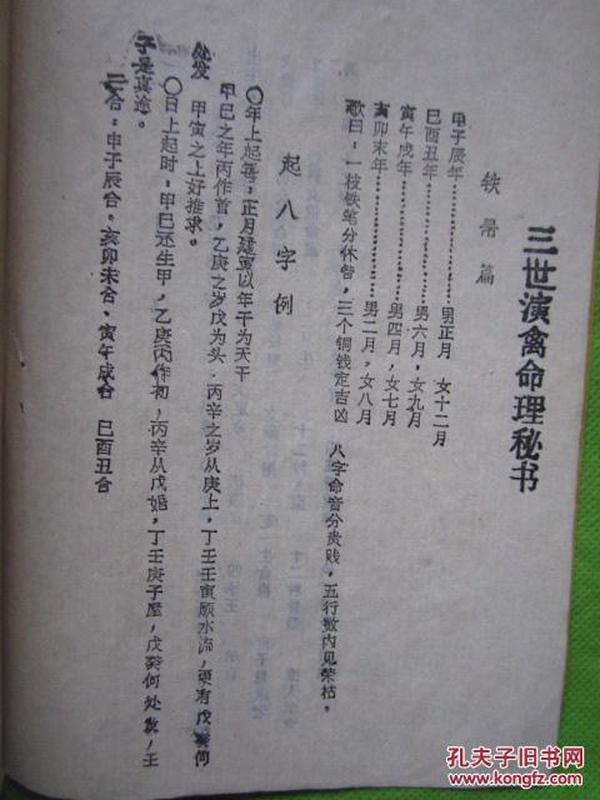 三世演禽命理秘书
铁帚篇
申子辰年………………男正月 女十二月
巳酉丑年………………男六月，女九月
寅午戌年………………男四月，女七月
亥卯未年………………男二月，女八月
歌曰：一枝铁笔分休咎，三个铜钱定吉凶 八字命音分贵贱，五行数内见荣枯。
起八字例
〇年上起，正月建寅以年干为天干
甲巳之年丙作首，乙庚之岁戊为头·丙辛之岁从庚上，丁壬壬寅顺水流，更有戊癸何
处发 甲寅之上好推求。
〇日上起时：甲巳还生甲，乙庚丙作初，丙辛从戊婚，丁壬庚子屋，戊癸何处发，壬
子是真途。
三合：申子辰合。亥卯未合、寅午戌合 巳酉丑合
孔夫子旧书网
www.kongfz.com